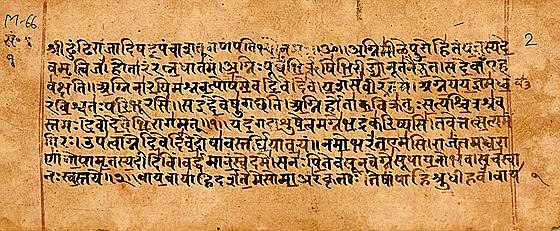 M-66
2
१
श्रीढुंढिराजादिषट्पंचाशत्गणपतिभ्यो ॥ॐ॥अग्निमीळेपुरोहितंयज्ञस्यदे
वमृत्विजं।होतारंरत्नधातमं।अग्निःपूर्वेभिर्ऋषिभिरीड्योनूतनैरुत।सदेवाँएह
वक्षति॥अग्निनारयिमश्नवत्पोषमेवदिवेदिवे।यशसंवीरवत्तमं।अग्नेयंयज्ञमध्व
रंविश्वतःपरिभूरसि॥सइद्देवेषुगच्छति।अग्निर्होताकविक्रतुःसत्यश्चित्रश्रव
स्तमः।देवोदेवेभिरागमत्॥१॥यदंगदाशुषेत्वमग्नेभद्रंकरिष्यसि।तवेत्तत्सत्यमं
गिरः।उपत्वाग्नेदिवेदिवेदोषावस्तर्धियावयं॥नमोभरंतएमसि।राजंतमध्वरा
णांगोपामृतस्यदीदिविं।वर्धमानंस्वेदमे।सनःपितेवसूनवेग्नेसूपायनोभव।सचस्वा
नःस्वस्तये॥२॥वायवायाहिदर्शतेमेसोमाअरंकृताः।तेषांपाहिश्रुधीहवं।वाय